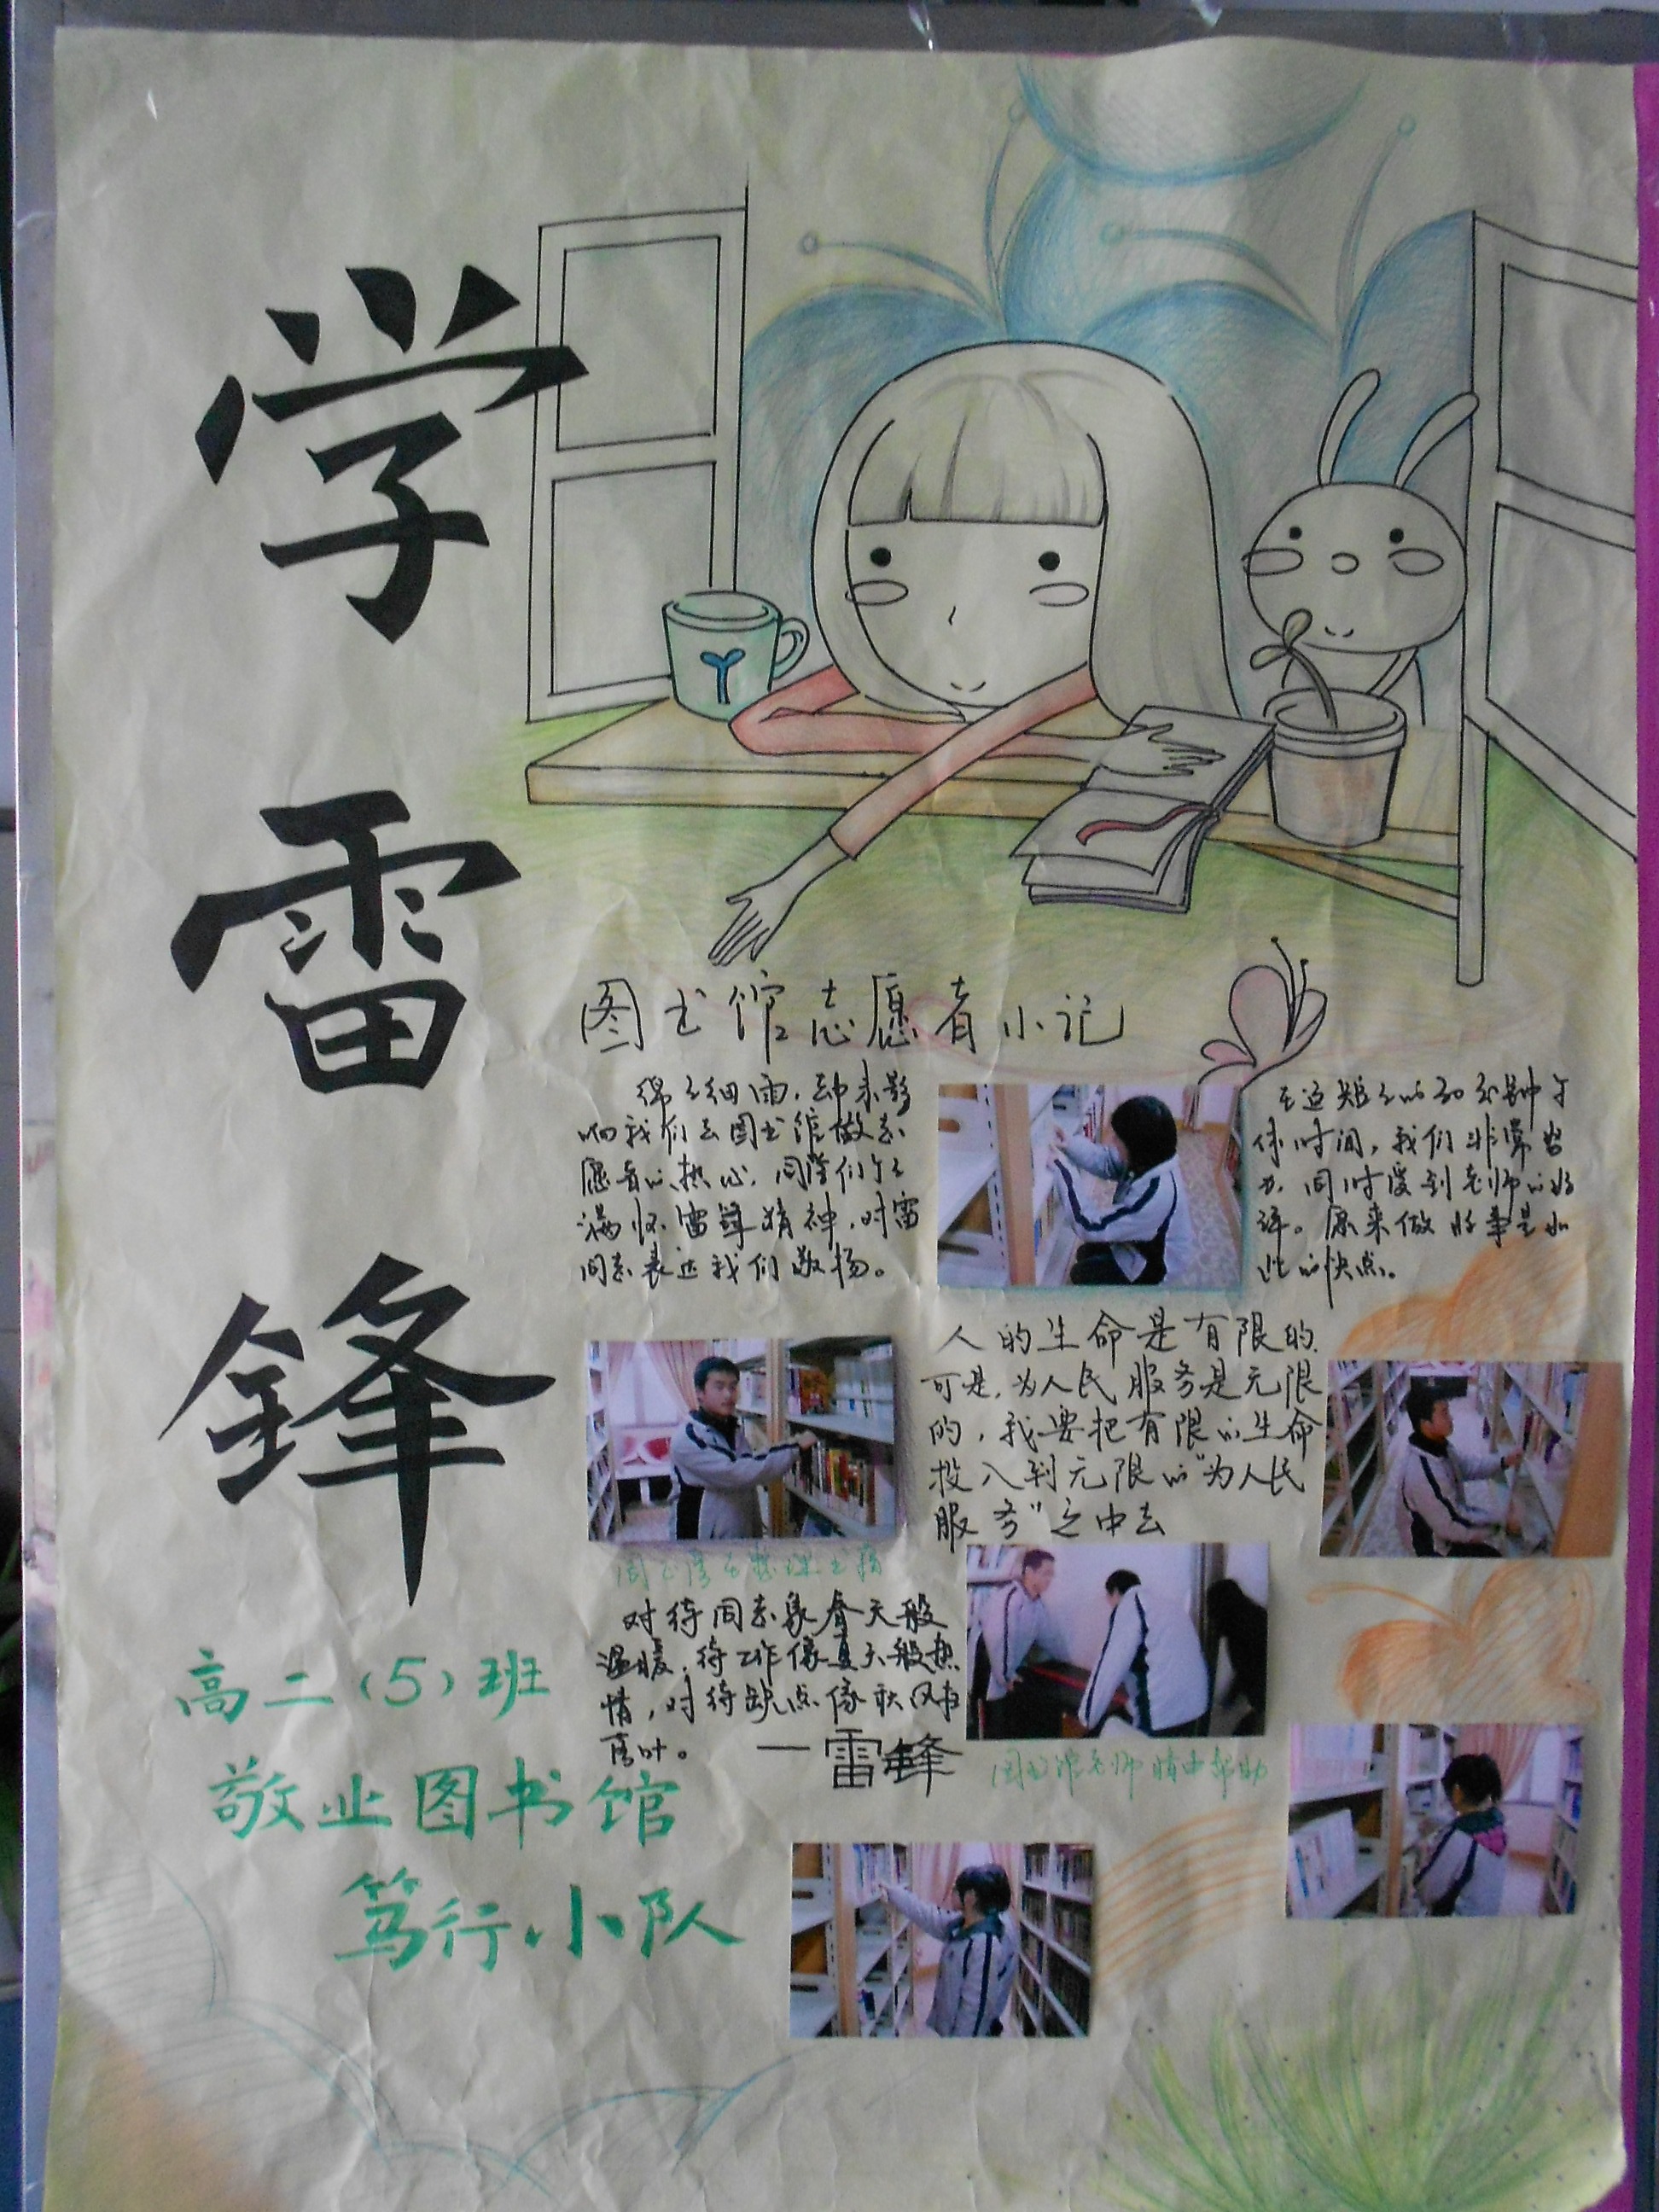 学
雷
鋒
图书馆志愿者小记
绵绵细雨,却未影
响我们去图书馆做志
愿者的热心,同学们个个
满怀雷锋精神,对雷
同志表达我们敬扬。
在这短短的30分钟午
休时间,我们非常努
力,同时受到老师的好
评。原来做好事是如
此的快点。
人的生命是有限的
可是,为人民服务是无限
的,我要把有限的生命
投入到无限的"为人民
服务"之中去
在整理书籍
对待同志象春天般
温暖,待工作像夏天般热
情,对待缺点像秋风扫
落叶。 —雷鋒
图书馆老师 帮助
高二(5)班
敬业图书馆
笃行·小队